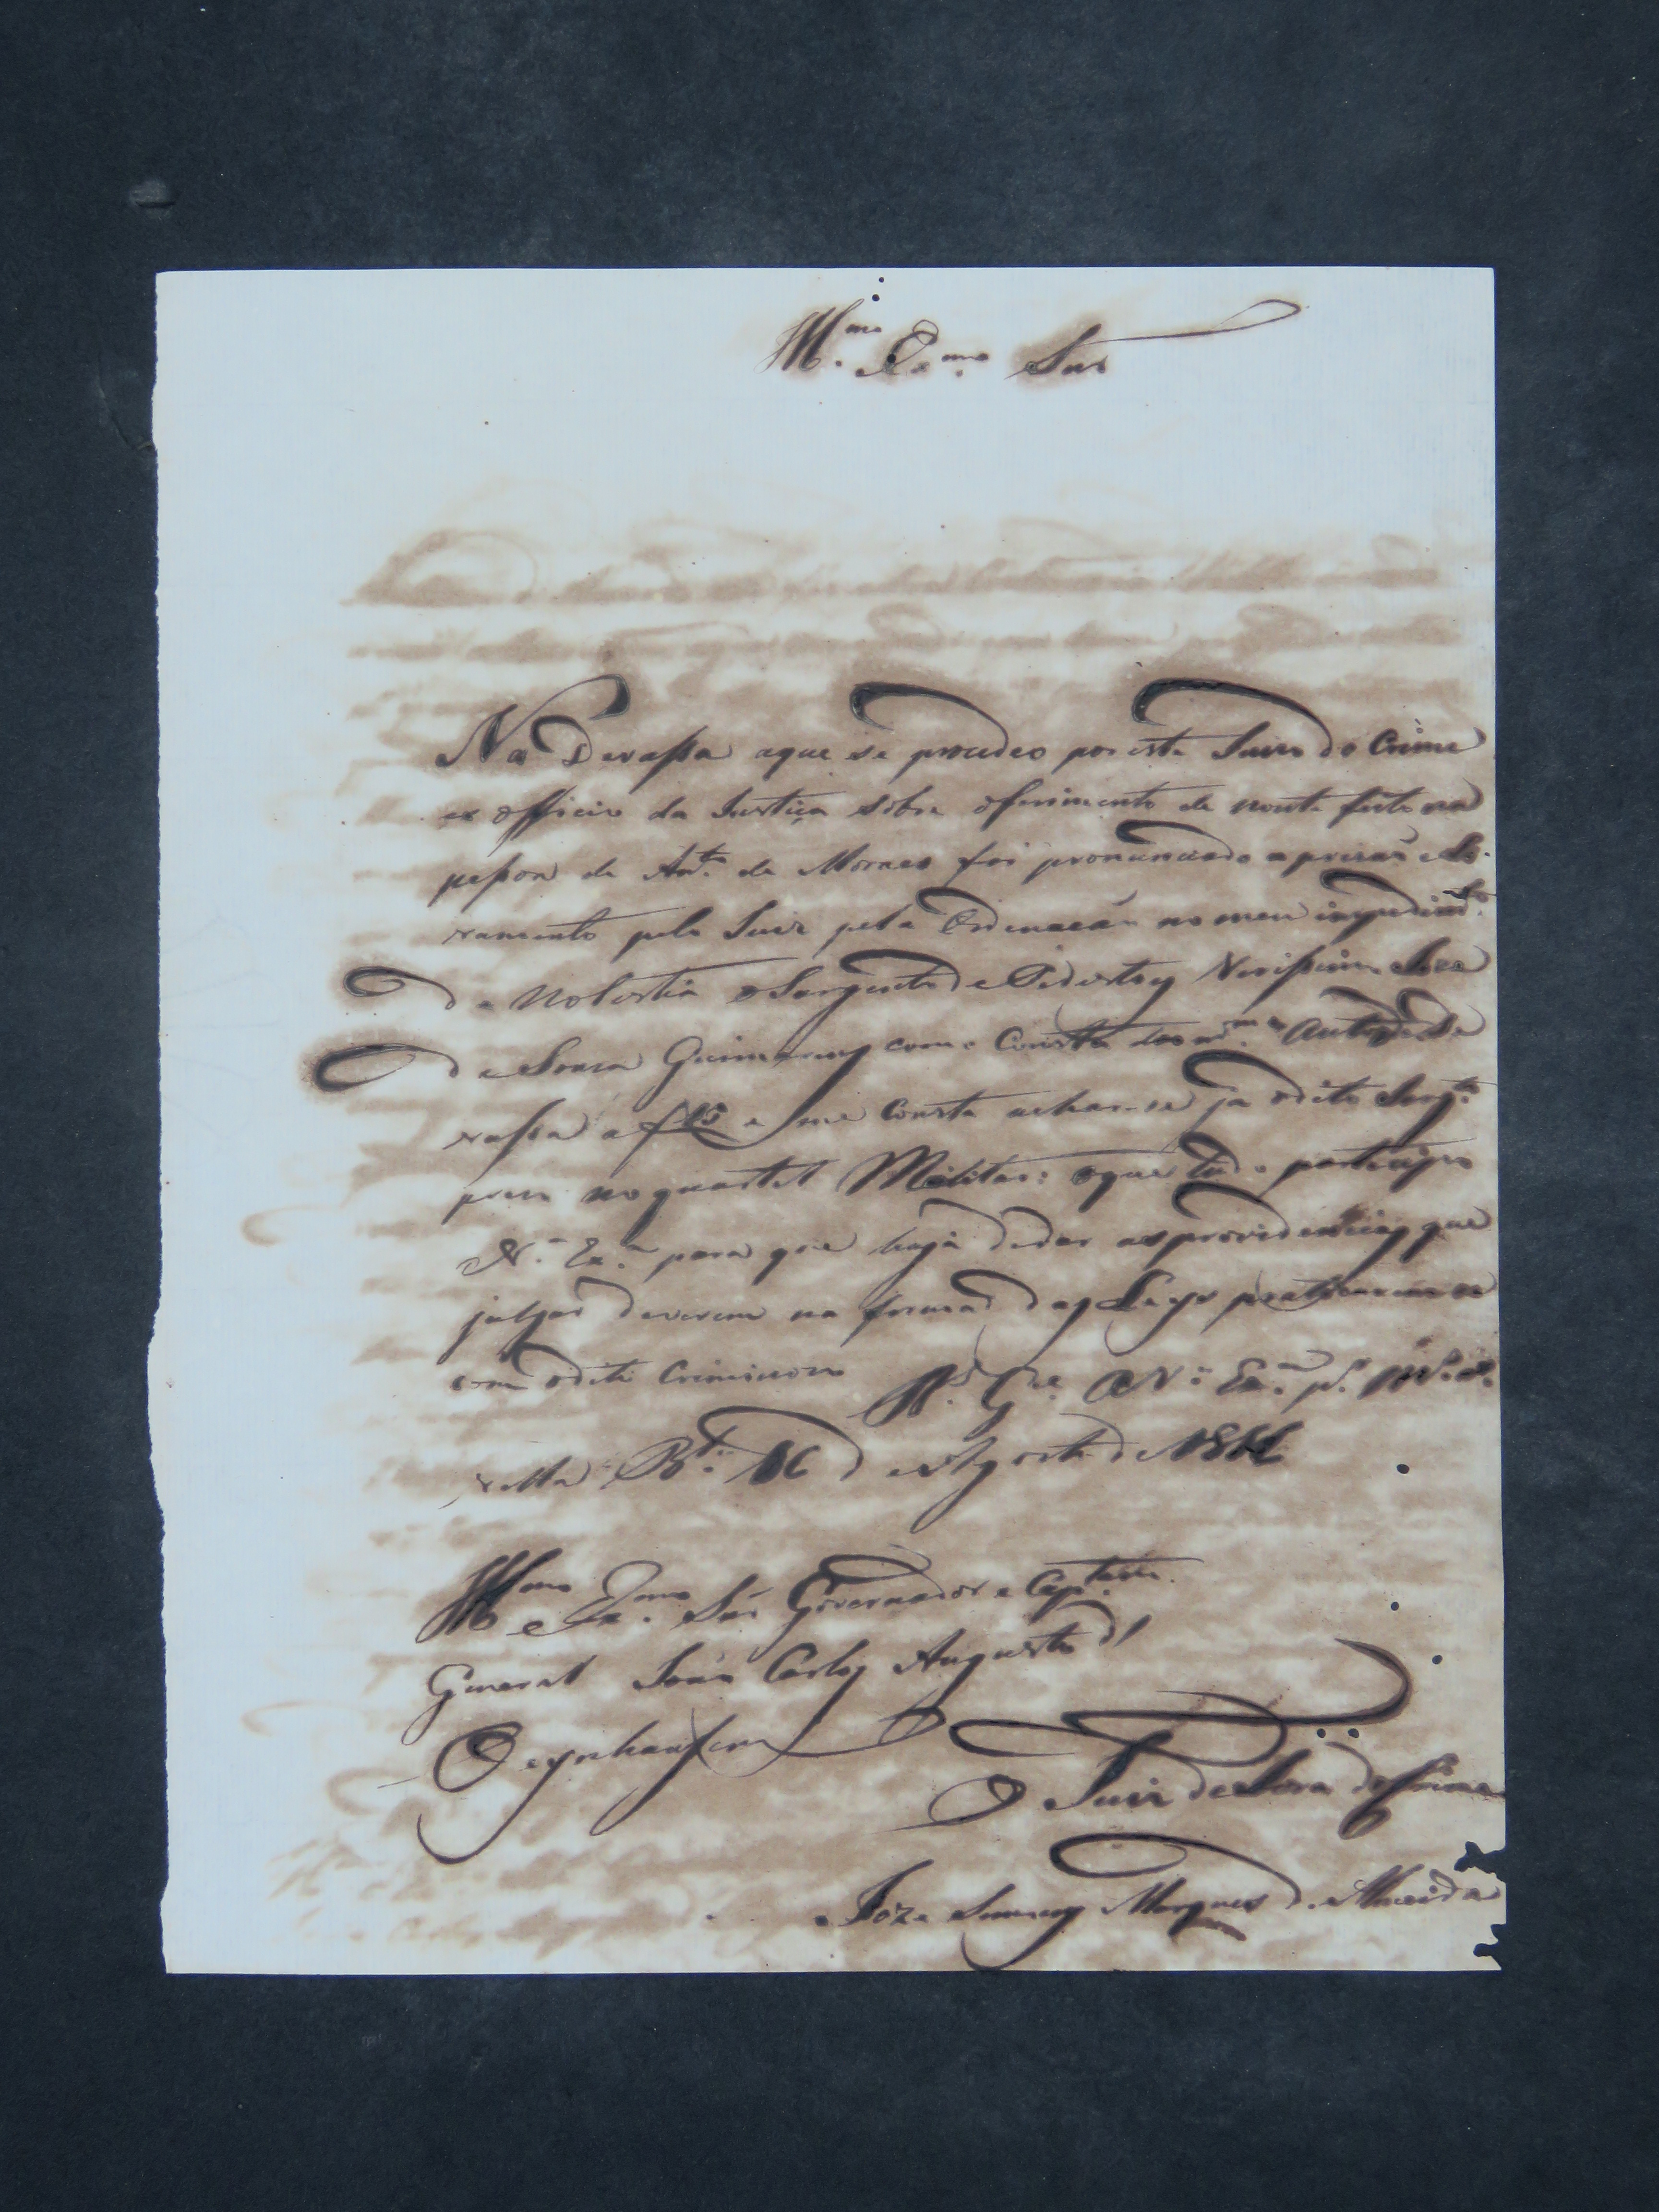 Ill.mo Ex.mo Snr
Na Devassa aque se procedeo por este Juizo do Crime
ex officio da Justiça sobre oferimento de noute feito na
pessoa de Ant.o de Moraes foi pronunciado aprizaõ eLi-
vramento pelo Juiz pela Ordenacaõ no meu impedim.to
de Molestia oSargento de Pedestres
de Souza Guimaraens como Consta da Autos de De
vassa a f e me Consta achar-se ja odito Sarg.to
prezo no quartel Militar: oque tudo participo
V.a Ex.a para que haja dedar asprovidencias que
julgar deverem na forma das Leys praticarem se
com odito Criminozo D.s G.e a V.a Ex.a
B.la 16 de Agosto de 181
Ill.mo e Ex.mo Snr Governador e Cap.tam
General Joaõ Carlos Augusto d'
Oeynhausen
O Juiz de Fora do Crime
Joze Marques de Almeida